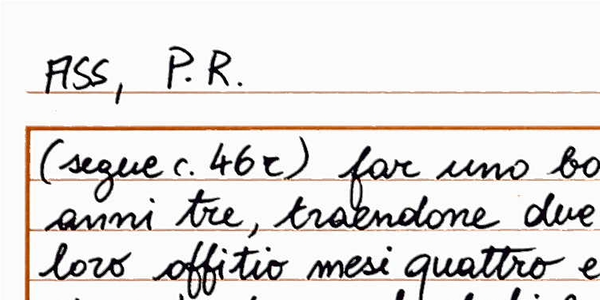 ASS, P.R.
(segue c. 46r) far uno bo
anni tre, traendone due
loro offitio mesi quattro e